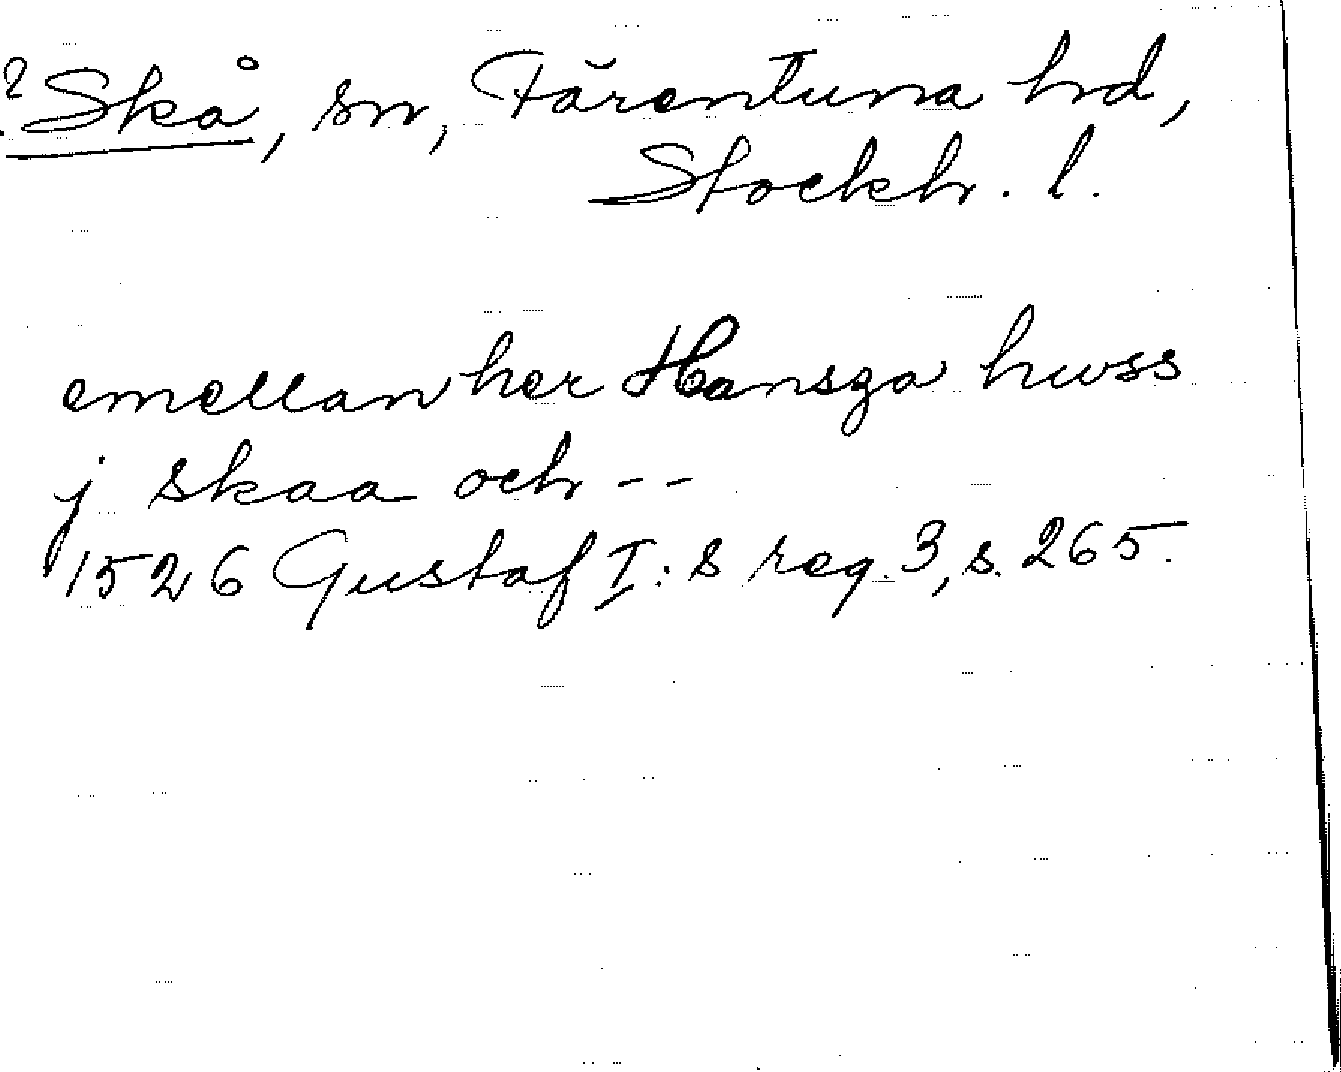 ? Skå, sn, Färentuna hd,
Stockh. l.
emellan her Hansza hwss
j skaa och --
1526 Gustaf I:s reg. 3, s. 265.